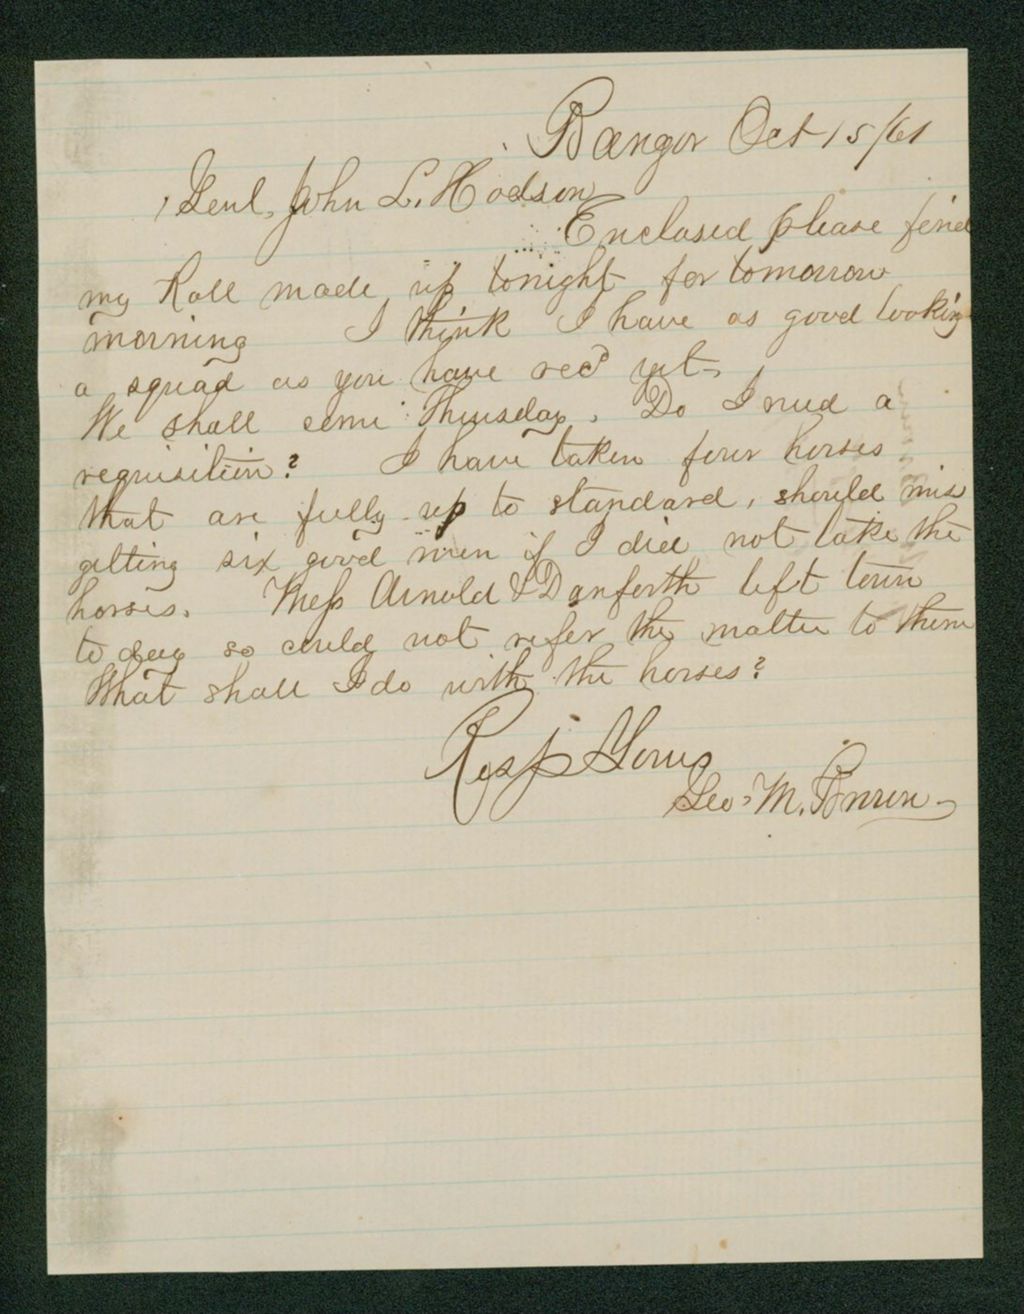 Bangor Oct 15/61
Genl. John L. Hodson
Enclosed please find
my Roll made up tonight for tomorrow
morning I think I have as good looking
a squad as you have recd yet.
We shall come Thursday. Do I need a
requisition? I have taken four horses
that are fully up to standard, should mis
getting six good men if I did not take the
horses. Mess Arnold & Danforth left town
to day so could not refer the matter to them
What shall I do with the horses?
Resp Yours
Geo. M. Brown